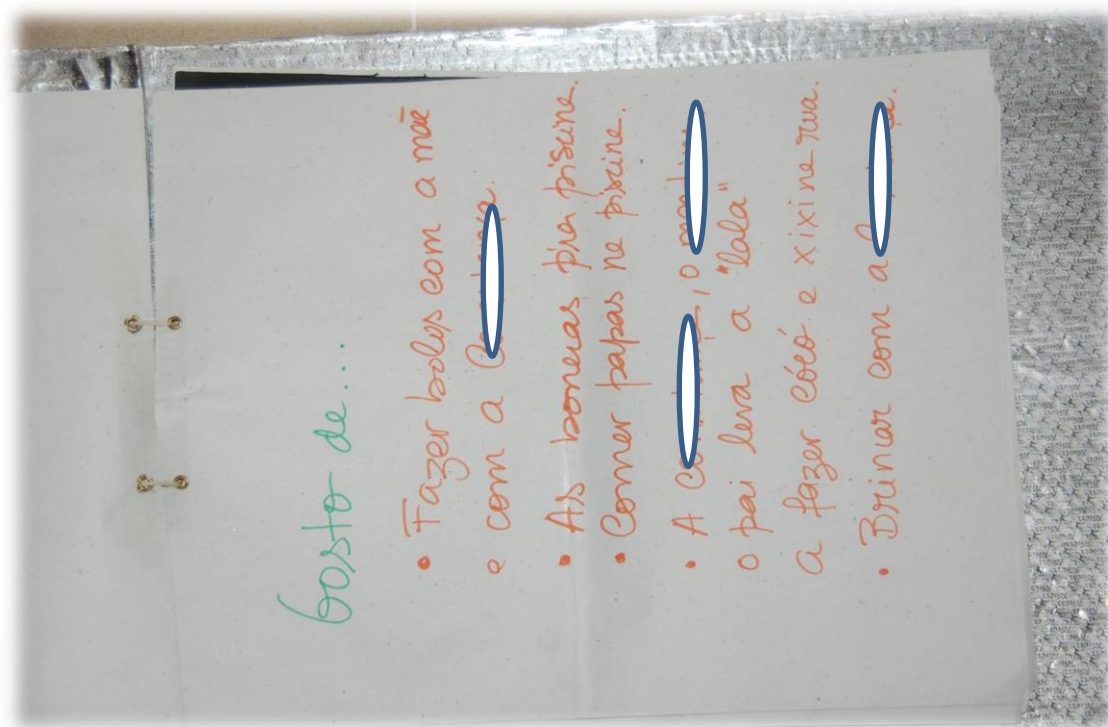 Gosto de...
• Fazer bolos com a mãe
e com a
• As bonecas pra piscine.
• Comer papas ne piscine.
• A , o
o pai leva a "lala"
a fazer cócó e xixi ne rua.
• Brincar com a